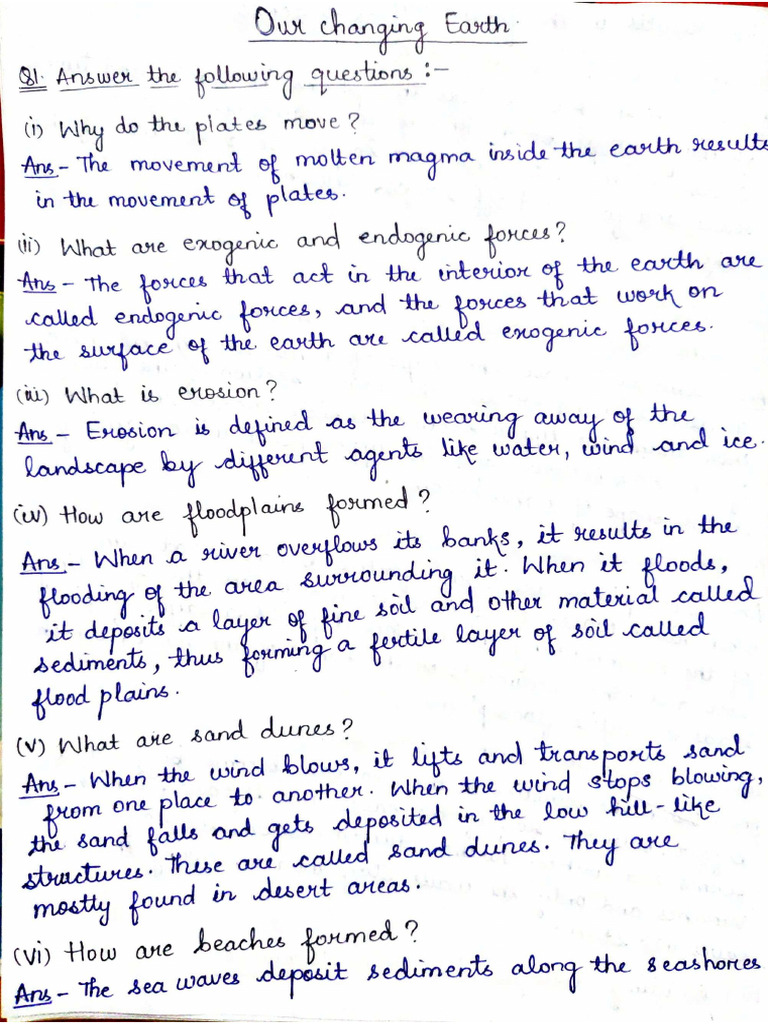 Our changing Earth.
Q1. Answer the following questions :-
(i) Why do the plates move?
Ans - The movement of molten magma inside the earth results
in the movement of plates.
(ii) What are exogenic and endogenic forces?
Ans - The forces that act in the interior of the earth are
called endogenic forces, and the forces that work on
the surface of the earth are called exogenic forces.
(iii) What is erosion?
Ans - Erosion is defined as the wearing away of the
landscape by different agents like water, wind and ice.
(iv) How are floodplains formed?
Ans - When a river overflows its banks, it results in the
flooding of the area surrounding it. When it floods,
it deposits a layer of fine soil and other material called
sediments, thus forming a fertile layer of soil called
flood plains.
(v) What are sand dunes?
Ans - When the wind blows, it lifts and transports sand
from one place to another. When the wind stops blowing,
the sand falls and gets deposited in the low hill-like
structures. These are called sand dunes. They are
mostly found in desert areas.
(vi) How are beaches formed?
Ans - The sea waves deposit sediments along the seashores